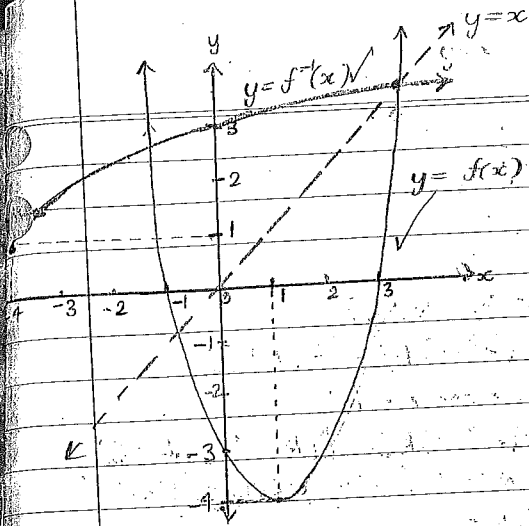 y=x
y
y=f⁻¹(x)
3
2
y= f(x)
1
x
4 -3 -2 -1 0 1 2 3
-1
-2
-3
-4